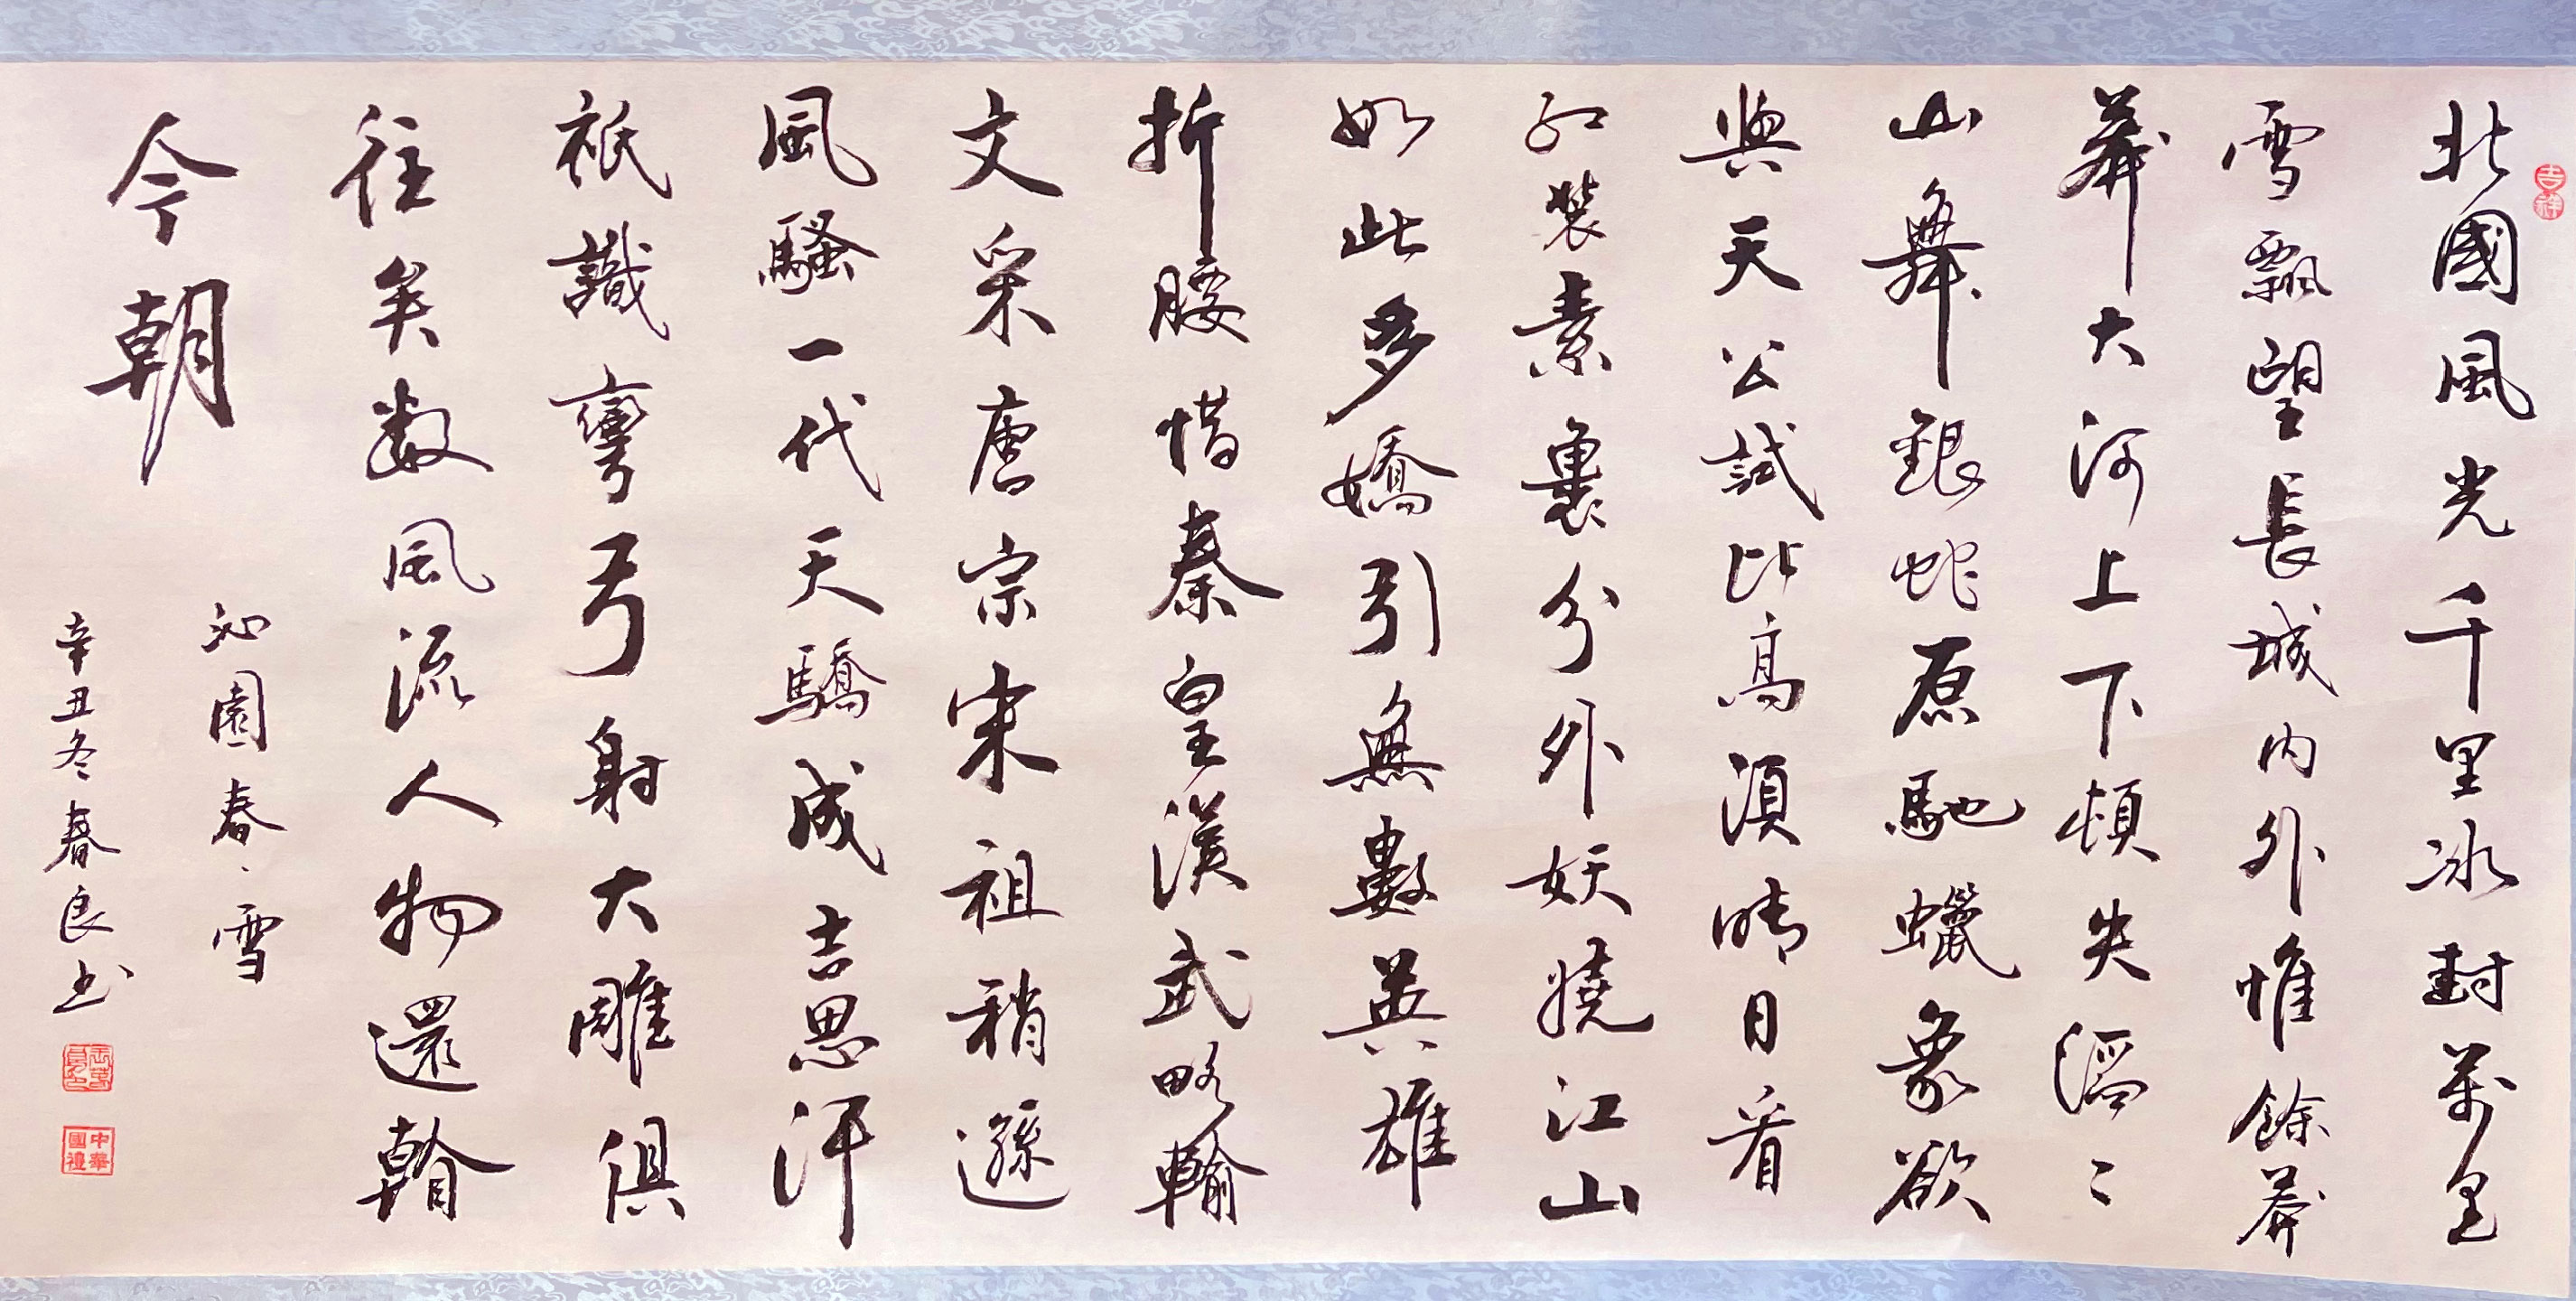 吉祥
北國風光千里冰封萬里
雪飄望長城內外惟餘莽
莽大河上下頓失滔〻
山舞銀蛇原馳蠟象欲
與天公試比高須晴日看
紅裝素裹分外妖嬈江山
如此多嬌引無數英雄
折腰惜秦皇漢武略輸
文采唐宗宋祖稍遜
風騷一代天驕成吉思汗
祇識彎弓射大雕俱
往矣數風流人物還看
今朝
沁園春、雪
辛丑冬春良书
中華國禮